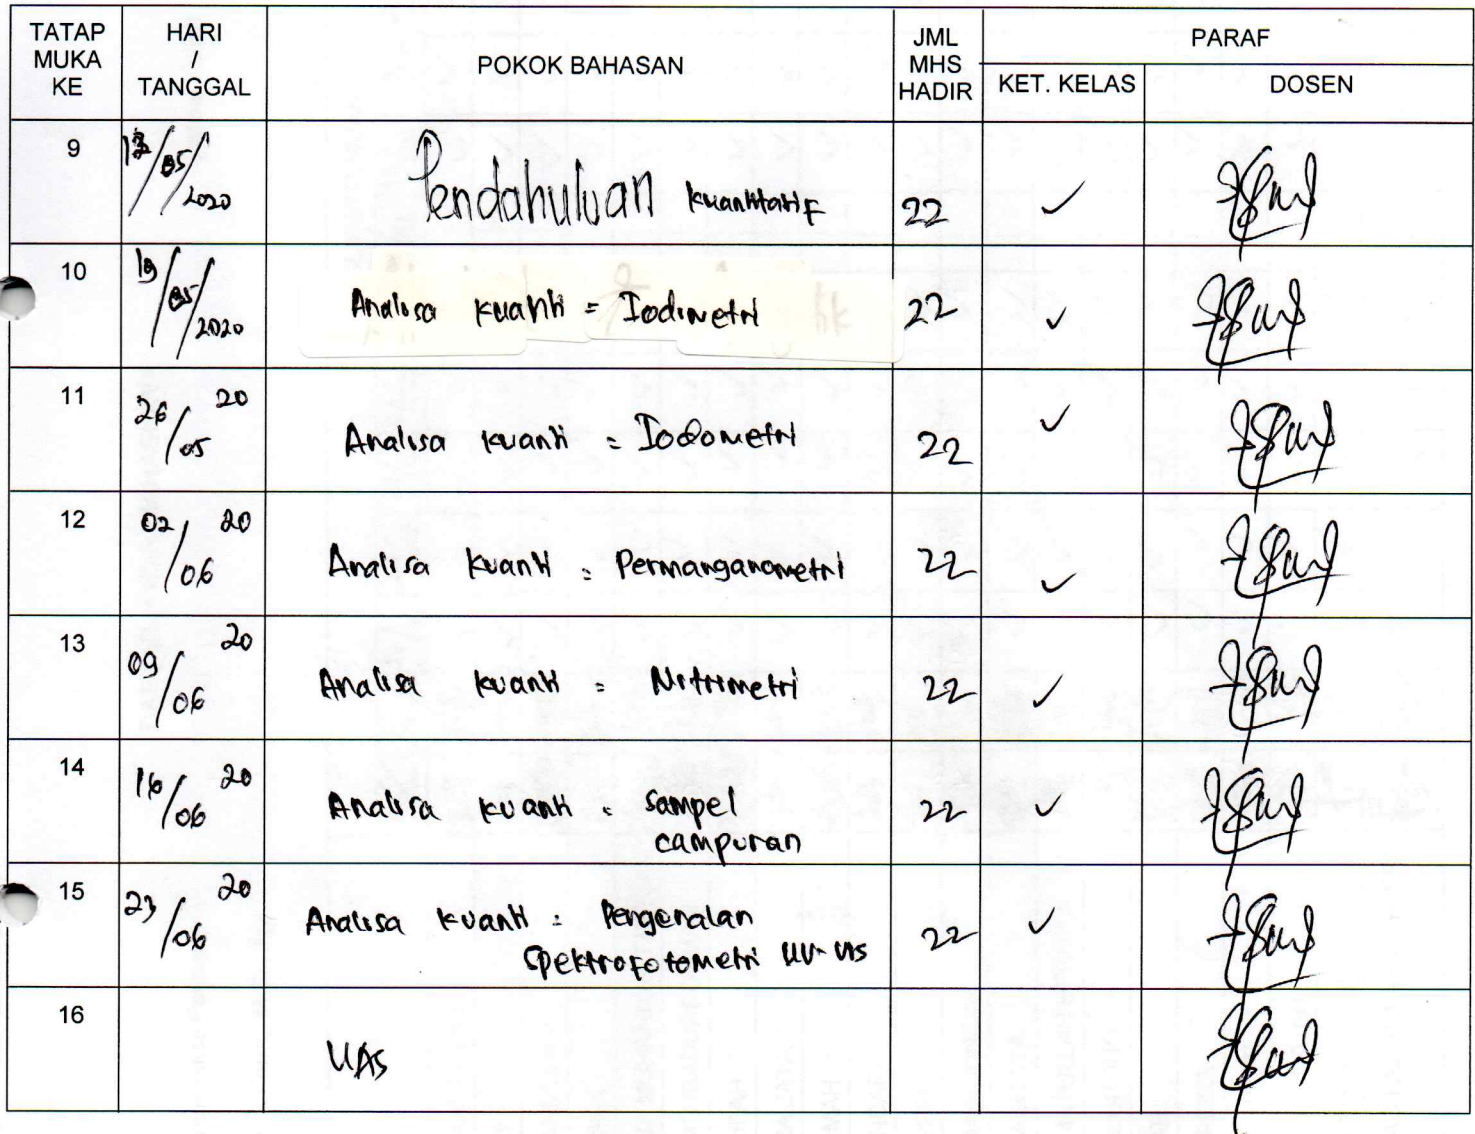 TATAP MUKA KE
HARI / TANGGAL
POKOK BAHASAN
JML MHS HADIR
PARAF
KET. KELAS
DOSEN
9 /05/2020 Pendahuluan kuantitatif 22 ✓
10 19/05/2020 Analisa kuanti = Iodimetri 22 ✓
11 26/05 20 Analisa kuanti = Iodometri 22 ✓
12 02/06 20 Analisa kuanti = Permanganometri 22 ✓
13 09/06 20 Analisa kuanti = Nitrimetri 22 ✓
14 16/06 20 Analisa kuanti = Sampel
campuran 22 ✓
15 23/06 20 Analisa kuanti = Pengenalan
Spektrofotometri UV-Vis 22 ✓
16 UAS